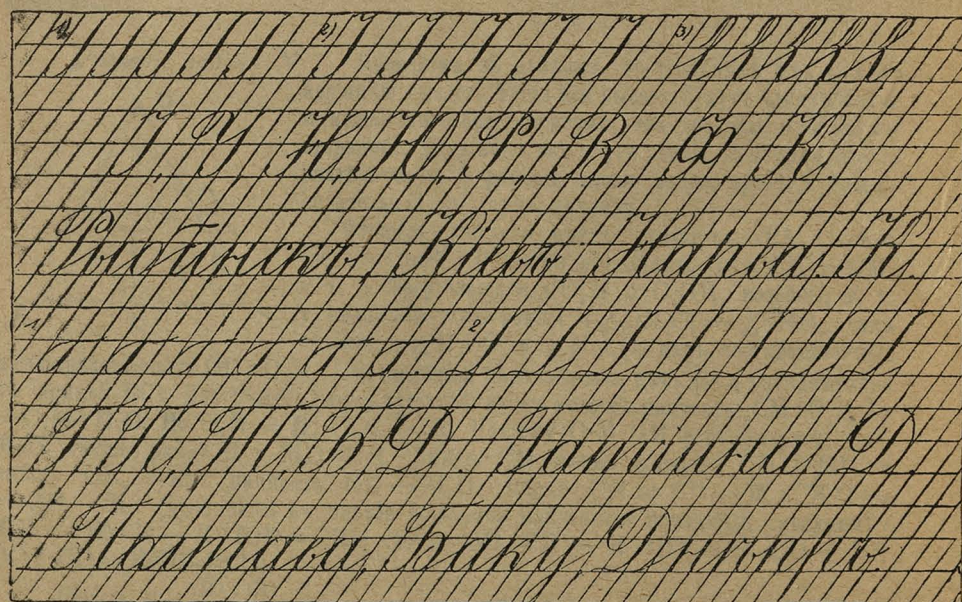 1) 2) 3)
І, У, Н, Ю, Р, В, Ф, К.
Рыбинскъ, Кіевъ, Нарва. К.
1 2
Г, П, Т, Б, Д. Гатчина. Д.
Полтава, Баку, Днѣпръ.